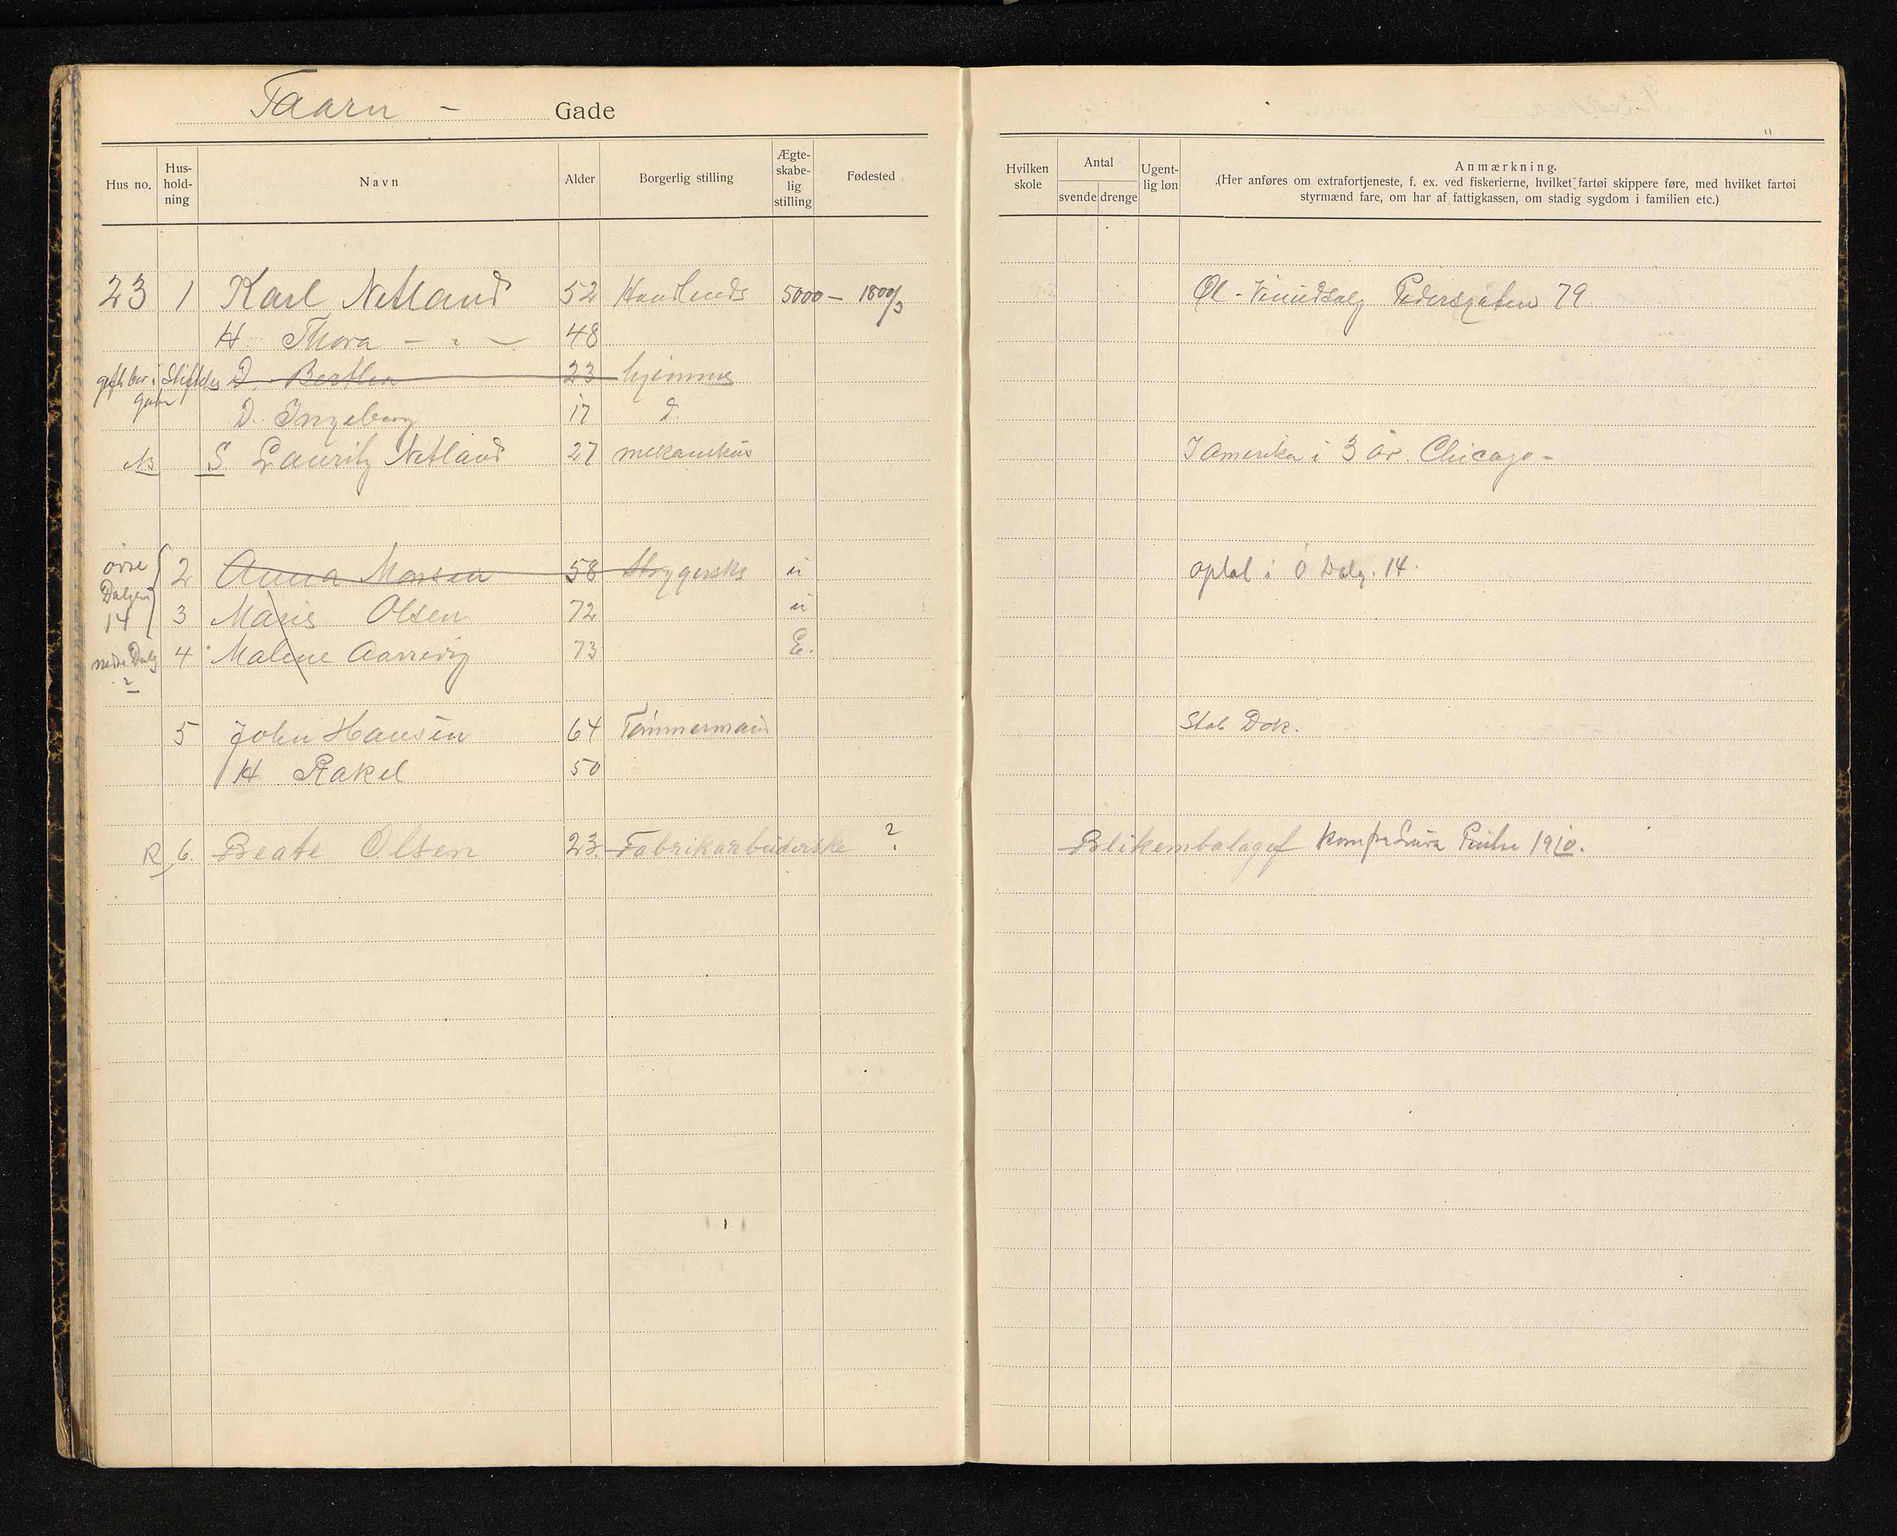 Taarn - Gade
Hus no. Hus-hold-ning Navn Alder Borgerlig stilling Ægte-skabe-lig stilling Fødested
Hvilken skole Antal svende drenge Ugent-lig løn Anmærkning.
(Her anføres om extrafortjeneste, f. ex. ved fiskerierne, hvilket fartøi skippere føre, med hvilket fartøi
styrmænd fare, om har af fattigkassen, om stadig sygdom i familien etc.)
23 1 Karl Netland 52 Handlende 5000 - 1800/3 Øl - Vinudsalg Pedersgaten 79
H Thora - " - 48
gift bor i D. Berthea 23 hjemme
D. Ingeborg 17 d
S. Lauritz Netland 27 mekanikus I Amerika i 3 år. Chicago -
øvre 2 Anna Monsen 58 Strygerske u optal i Ø Dalg. 14.
14 3 Maris Olsen 72 u
nedre Dalg 4 Malene Aarrevig 73 E.
2
5 John Hansen 64 Tømmermand Stav Dok.
H Rakel 50
R 6. Beate Olsen 23. Fabrikarbeiderske ? Blikembalagef kom fra Pintse 1910.